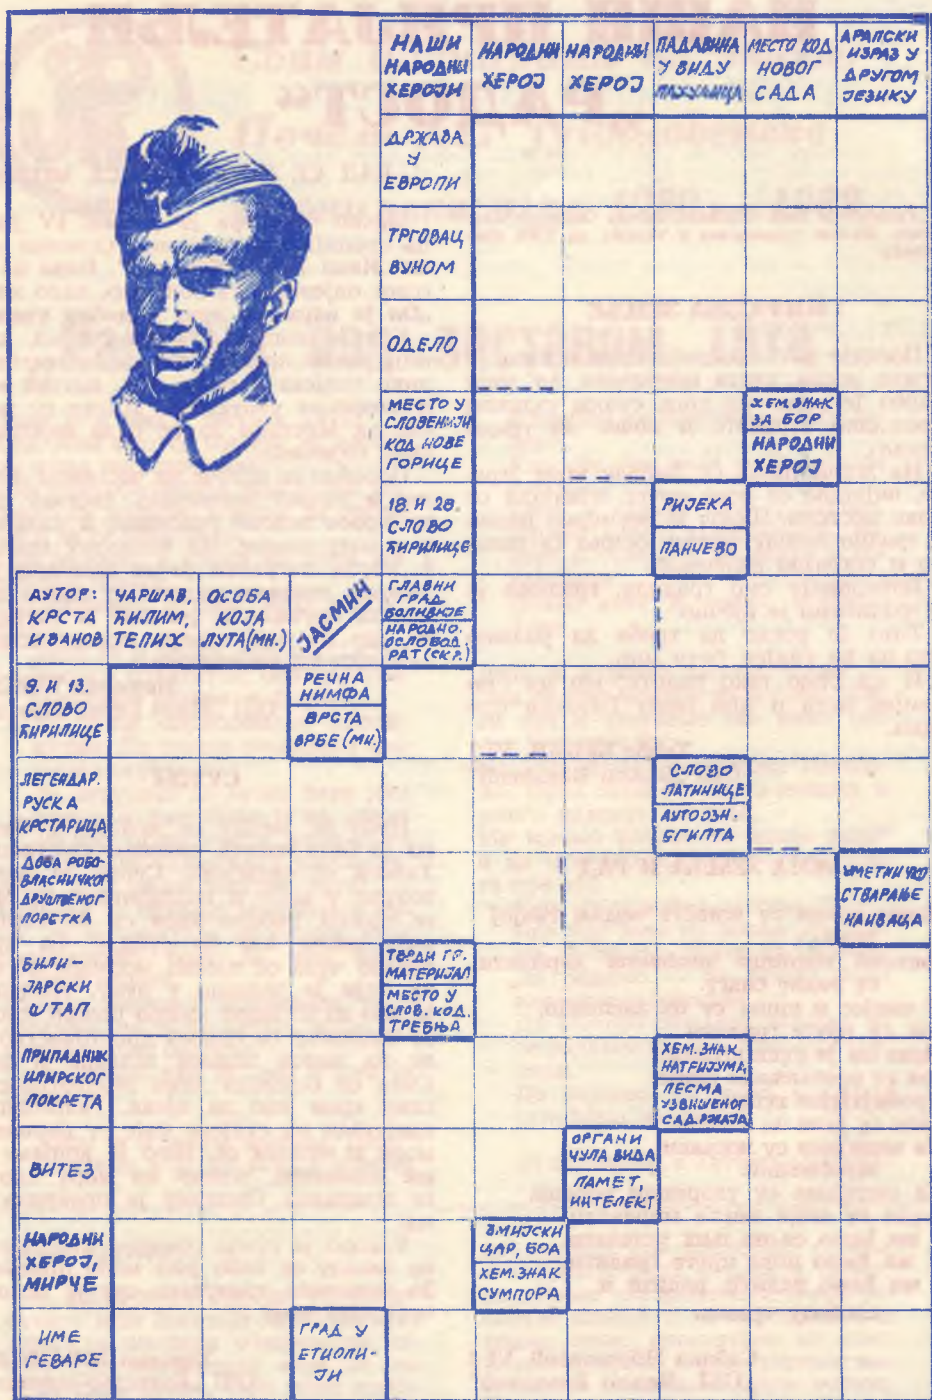 НАШИ
НАРОДНИ
ХЕРОЈИ
НАРОДНИ
ХЕРОЈ
НАРОДНИ
ХЕРОЈ
ПАДАВИНА
У ВИДУ
ПАХУЉИЦА
МЕСТО КОД
НОВОГ
САДА
АРАПСКИ
ИЗРАЗ У
ДРУГОМ
ЈЕЗИКУ
ДРЖАВА
У
ЕВРОПИ
ТРГОВАЦ
ВУНОМ
ОДЕЛО
МЕСТО У
СЛОВЕНИЈИ
КОД НОВЕ
ГОРИЦЕ
ХЕМ. ЗНАК
ЗА БОР
НАРОДНИ
ХЕРОЈ
18. И 28.
СЛОВО
ЋИРИЛИЦЕ
РИЈЕКА
ПАНЧЕВО
АУТОР:
КРСТА
ИВАНОВ
ЧАРШАВ,
ЋИЛИМ,
ТЕПИХ
ОСОБА
КОЈА
ЛУТА (МН.)
ЈАСМИН
ГЛАВНИ
ГРАД
БОЛИВИЈЕ
НАРОДНО-
ОСЛОБОД.
РАТ (СКР.)
9. И 13.
СЛОВО
ЋИРИЛИЦЕ
РЕЧНА
НИМФА
ВРСТА
ВРБЕ (МН.)
ЛЕГЕНДАР.
РУСКА
КРСТАРИЦА
СЛОВО
ЛАТИНИЦЕ
АУТООЗН.
ЕГИПТА
ДОБА РОБО-
ВЛАСНИЧКОГ
ДРУШТВЕНОГ
ПОРЕТКА
УМЕТНИЧКО
СТВАРАЊЕ
НАИВАЦА
БИЛИ-
ЈАРСКИ
ШТАП
ТВРДИ ГР.
МАТЕРИЈАЛ
МЕСТО У
СЛОВ. КОД.
ТРЕБЊА
ПРИПАДНИК
ИЛИРСКОГ
ПОКРЕТА
ХЕМ. ЗНАК
НАТРИЈУМА
ПЕСМА
УЗВИШЕНОГ
САДРЖАЈА
ВИТЕЗ
ОРГАНИ
ЧУЛА ВИДА
ПАМЕТ,
ИНТЕЛЕКТ
НАРОДНИ
ХЕРОЈ,
МИРЧЕ
ЗМИЈСКИ
ЦАР, БОА
ХЕМ. ЗНАК
СУМПОРА
ИМЕ
ГЕВАРЕ
ГРАД У
ЕТИОПИ-
ЈИ